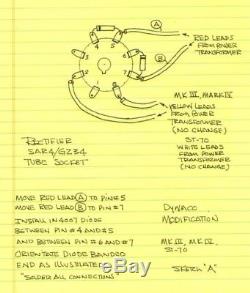 A
RED LEADS
FROM POWER
TRANSFORMER
B
4
5
3
6
2
7
1
8
MK III, MARK IV
YELLOW LEADS
FROM POWER
TRANSFORMER
(NO CHANGE)
ST-70
WHITE LEADS
FROM POWER
TRANSFORMER
(NO CHANGE)
RECTIFIER
5AR4/GZ34
TUBE SOCKET
MOVE RED LEAD A TO PIN #5
MOVE RED LEAD B TO PIN #7
INSTALL IN 4007 DIODE
BETWEEN PIN #4 AND #5
AND BETWEEN PIN #6 AND #7
ORIENTATE DIODE BANDED
END AS ILLUSTRATED
"SOLDER ALL CONNECTIONS"
DYNACO
MODIFICATION
MK III, MK IV,
ST-70
SKETCH "A"
ebay